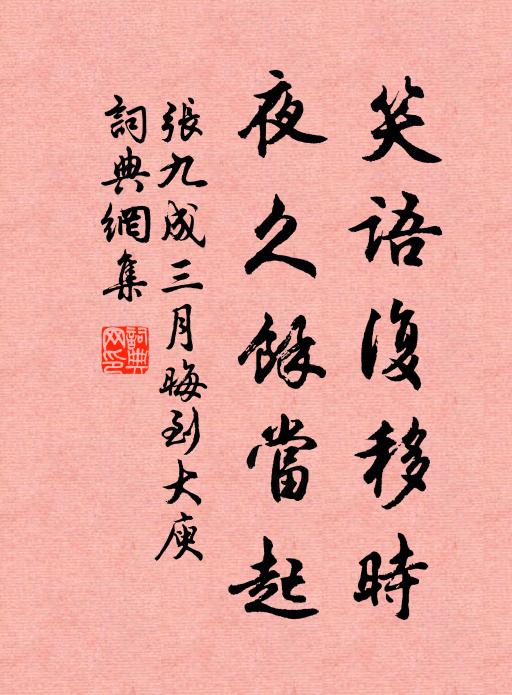 笑語復移時
夜久餘當起
張九成三月晦到大庾
詞典網集
詞典
网印